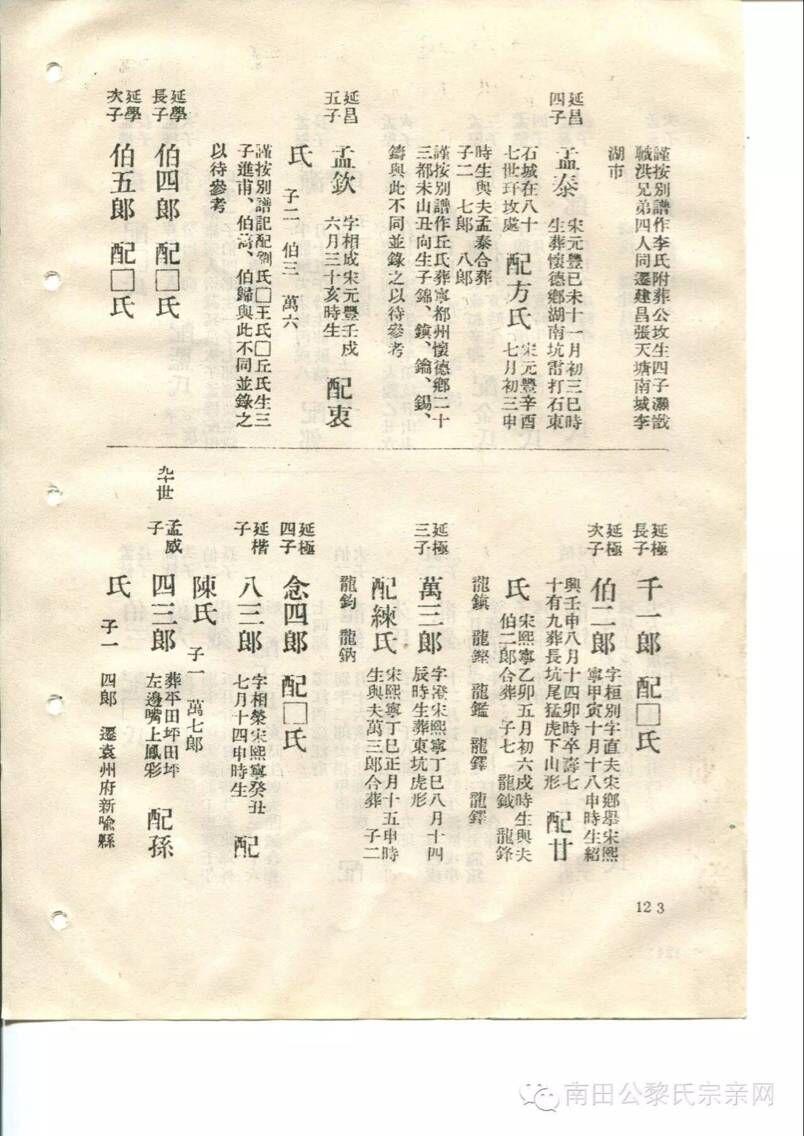 謹按別譜作李氏附葬公坟生四子灝㵾
職洪兄弟四人同遷建昌張天塘南城李
湖市
延昌
四子
孟泰
宋元豐已未十一月初三巳時
生葬懷德鄉湖南坑雷打石東
石城在八十
七世玕坟處
配方氏
宋元豐辛酉
七月初三申
時生與夫孟泰合葬
子二 七郎 八郎
謹按別譜作丘氏葬寧都州懷德鄉二十
三都未山丑向生子錦、鎮、鑰、錫、
鑄與此不同並錄之以待參考
延昌
五子
孟欽
字相成宋元豐壬戍
六月三十亥時生
配衷
氏
子二 伯三 萬六
謹按別譜記配劉氏□王氏□丘氏生三
子進甫、伯嵩、伯歸與此不同並錄之
以待參考
延學
長子
伯四郎 配□氏
延學
次子
伯五郎 配□氏
延極
長子
千一郎 配□氏
延極
次子
伯二郎
字桓別字直夫宋鄉舉宋熙
寧甲寅十月十八申時生紹
興壬申八月十四卯時卒壽七
十有九葬長坑尾猛虎下山形
配甘
氏
宋熙寧乙卯五月初六戍時生與夫
伯二郎合葬 子七 龍鉞 龍鋒
龍鎮 龍鏗 龍鑑 龍鐸 龍鐸
延極
三子
萬三郎
字滂宋熙寧丁巳八月十四
辰時生葬東坑虎形
配練氏
宋熙寧丁巳正月十五申時
生與夫萬三郎合葬 子二
龍鈞 龍鈉
延極
四子
念四郎 配□氏
延楷
子
八三郎
字相榮宋熙寧癸丑
七月十四申時生
配
陳氏
子一 萬七郎
九十世
孟威
子
四三郎
葬平田坪田坪
左邊嘴上鳳形
配孫
氏
子一 四郎 遷袁州府新喻縣
12 3
南田公黎氏宗亲网